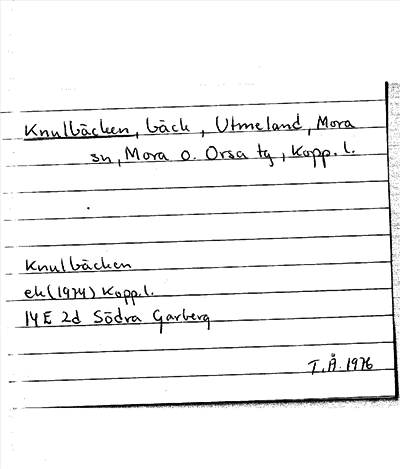 Knulbäcken, bäck, Utmeland, Mora
sn, Mora o. Orsa tg, Kopp. l.
Knulbäcken
ek (1974) Kopp. l.
14E 2d Södra Garberg
T.Å. 1976